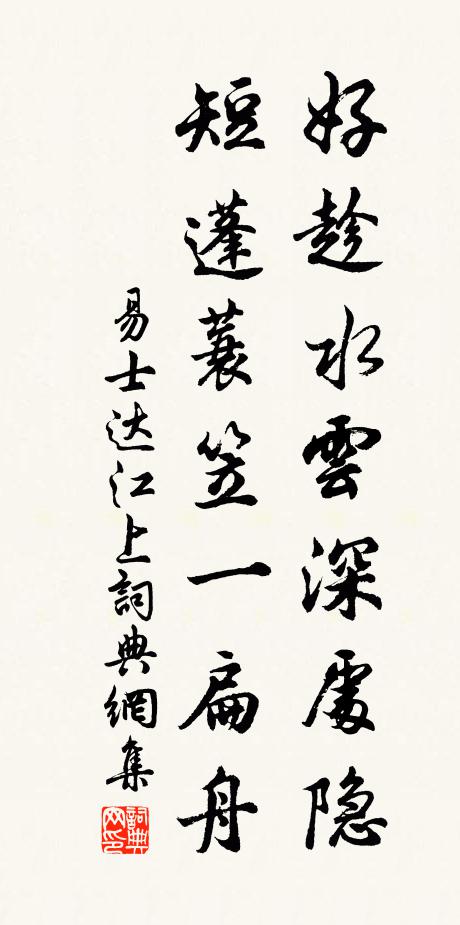 好趁水雲深處隐
短蓬蓑笠一扁舟
易士达江上詞典網集
詞典网印